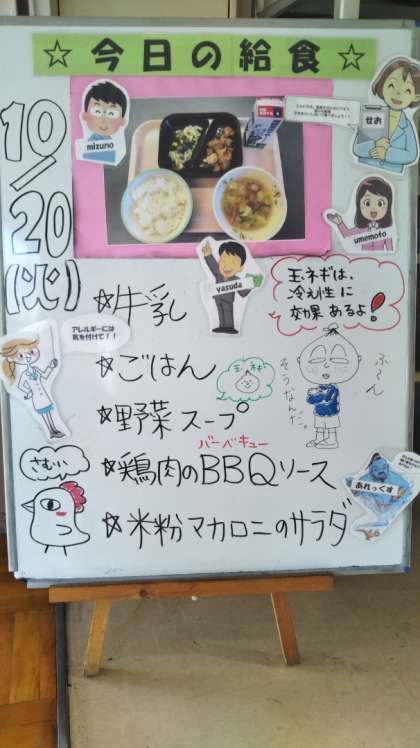 ☆今日の給食☆
mizuno
せお
umemoto
yasuda
10/20
(火)
玉ネギは、
冷え性に
効果あるよ!
アレルギーには
気を付けて!!
☆牛乳
☆ごはん
玉ネギ
ふーん
そうなんだ。
☆野菜スープ
バーベキュー
さむぃぃ
☆鶏肉のBBQソース
あれっくす
☆米粉マカロニのサラダ